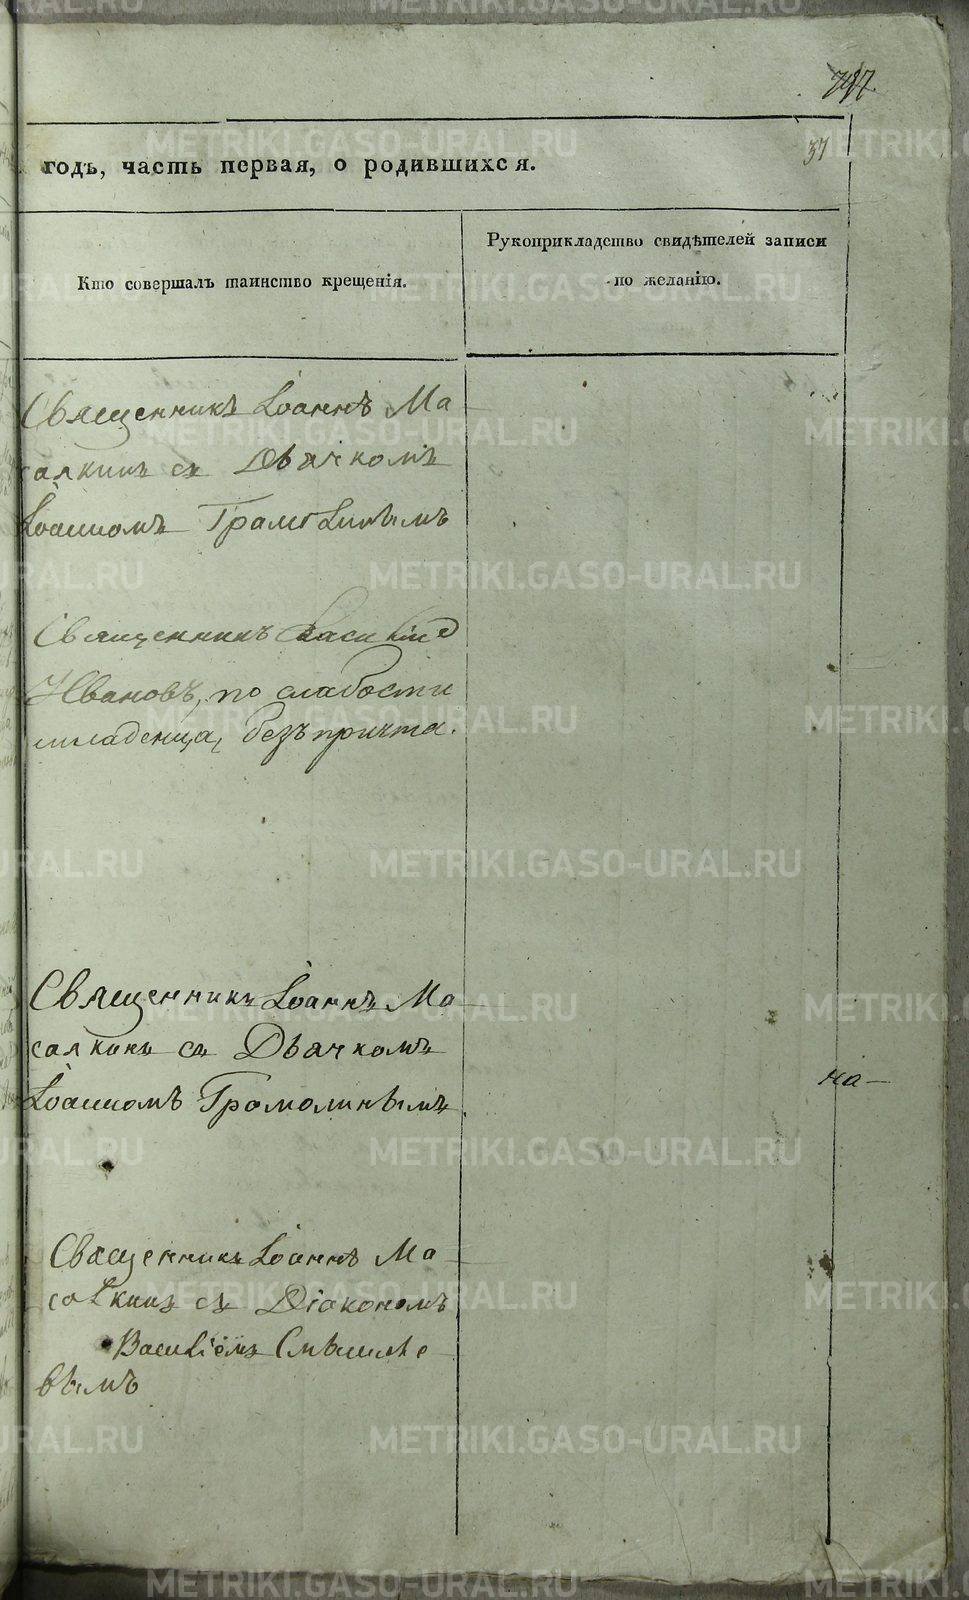 37
годъ, часть первая, о родившихся.
Кто совершалъ таинство крещенія.
Рукоприкладство свидѣтелей записи
по желанію.
Священникъ Іоаннъ Ма
салкинъ съ Дьячкомъ
Іоанномъ
Священникъ Василій
Ивановъ, по слабости
младенца, безъ причта.
Священникъ Іоаннъ Ма
салкинъ съ Дьячкомъ
Іоанномъ Грамолинымъ
Священникъ Іоаннъ Ма
салкинъ съ Діакономъ
Василіемъ
вымъ
на
METRIKI.GASO-URAL.RU